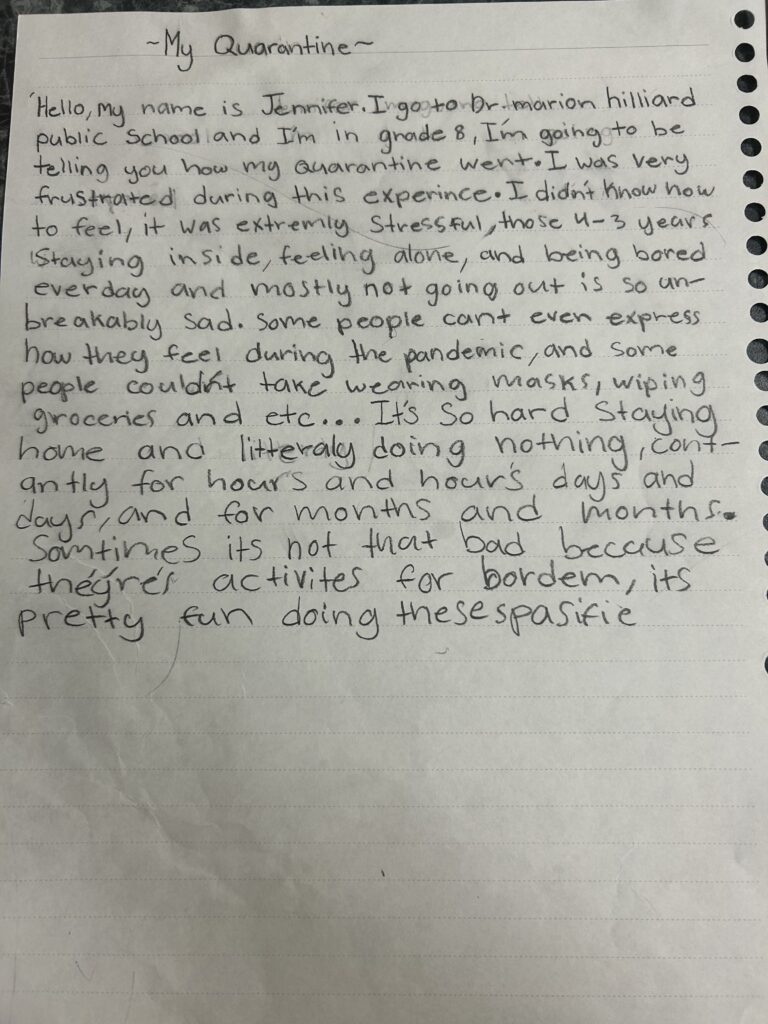 ~My Quarantine~
Hello, my name is Jennifer. I go to Dr. marion hilliard
public School and I'm in grade 8, I'm going to be
telling you how my quarantine went. I was very
frustrated during this experince. I didn't know how
to feel, it was extremly Stressful, those 4-3 years
Staying inside, feeling alone, and being bored
everday and mostly not going out is so un-
breakably sad. Some people cant even express
how they feel during the pandemic, and some
people couldn't take wearing masks, wiping
groceries and etc... It's So hard Staying
home and litteraly doing nothing, cont-
antly for hours and hour's days and
days, and for months and months.
Somtimes its not that bad because
theýre's activites for bordem, its
pretty fun doing these spasifie